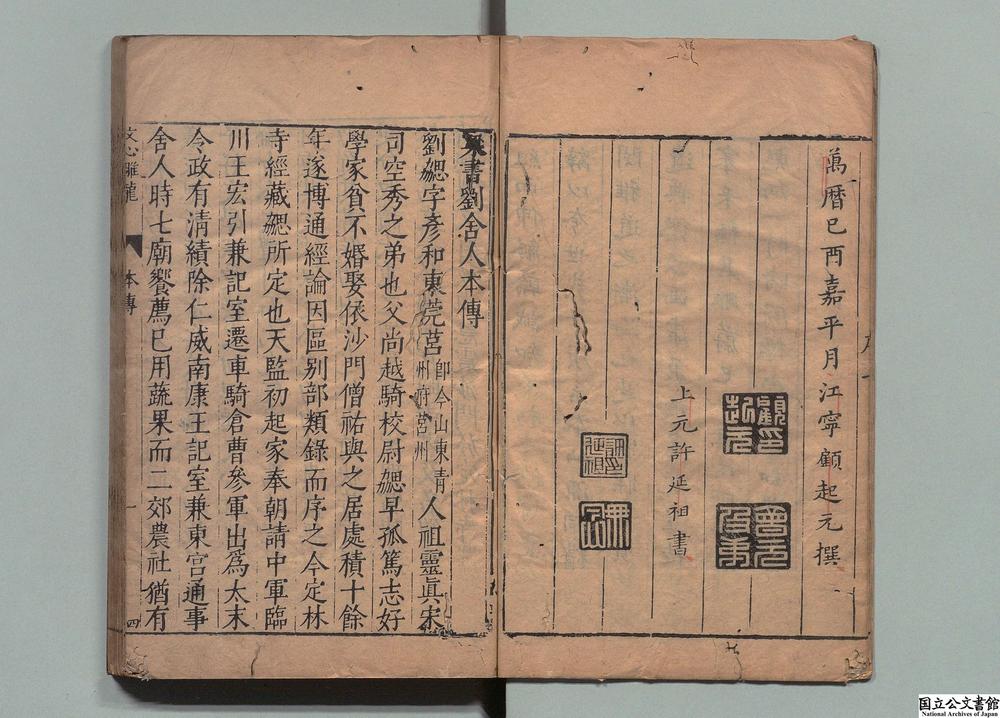 萬曆己酉嘉平月江寧顧起元撰
上元許延祖書
梁書劉舍人本傳
劉勰字彥和東莞莒即今山東青州府莒州人祖靈眞宋
司空秀之弟也父尚越騎校尉勰早孤篤志好
學家貧不婚娶依沙門僧祐與之居處積十餘
年遂博通經論因區別部類錄而序之今定林
寺經藏勰所定也天監初起家奉朝請中軍臨
川王宏引兼記室遷車騎倉曹參軍出爲太末
令政有清績除仁威南康王記室兼東宮通事
舍人時七廟饗薦已用蔬果而二郊農社猶有
文心雕龍
本傳
一
四
国立公文書館
National Archives of Japan